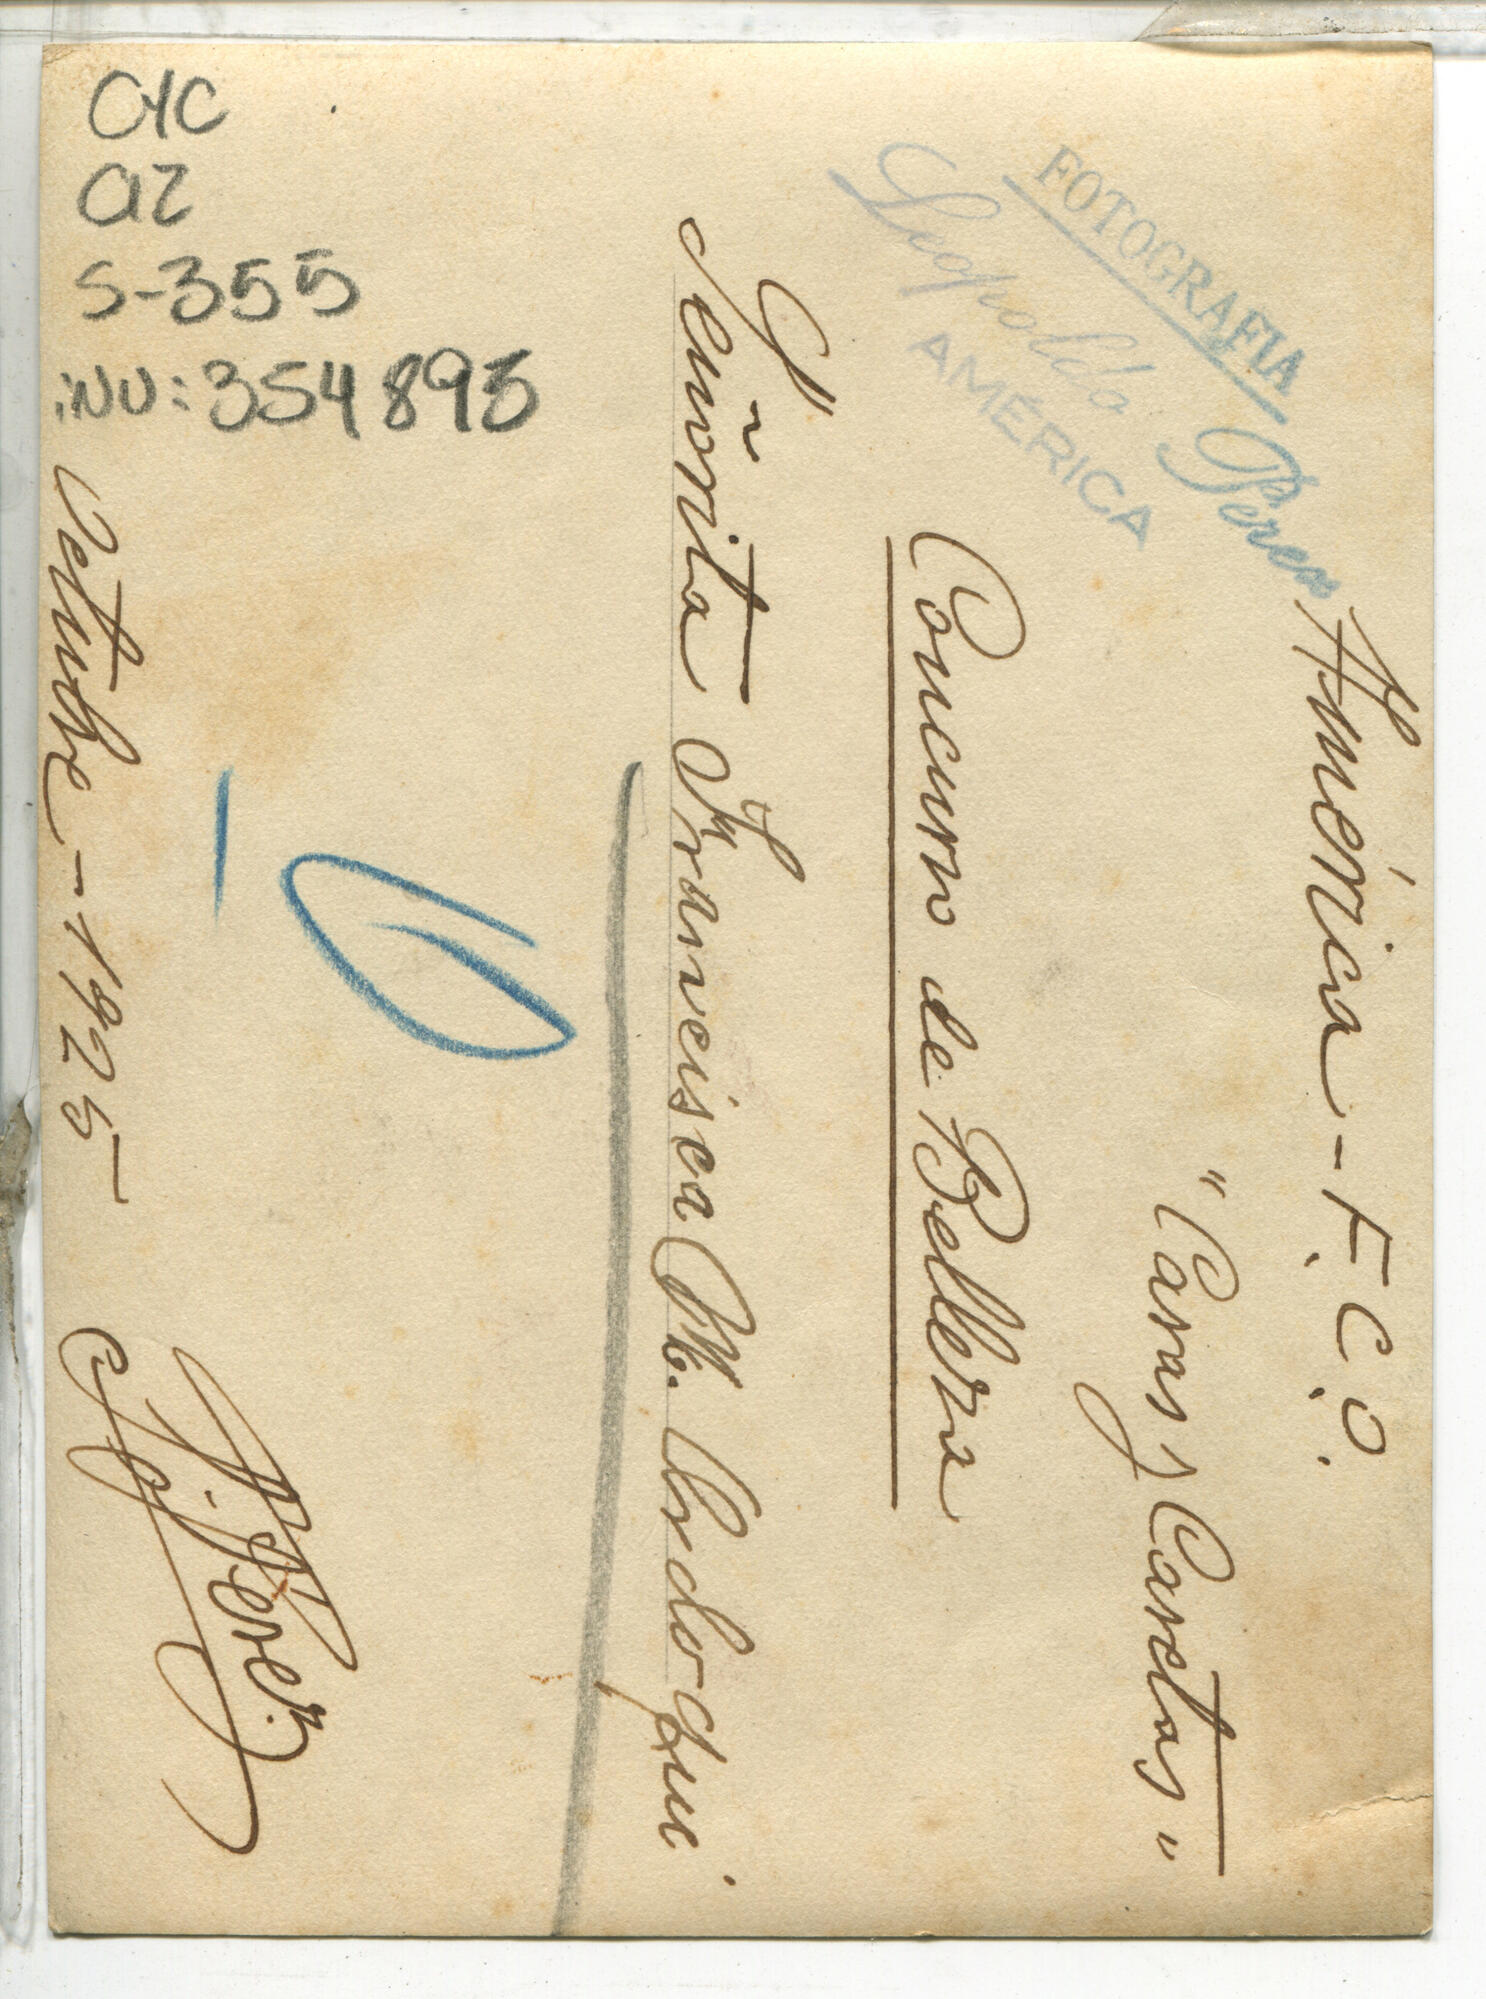 CYC
AZ
S-355
INV: 354893
FOTOGRAFIA
Leopoldo Perez
AMÉRICA
América - F. C. O.
"Caras y Caretas"
Concurso de Belleza
Señorita Francisca M. Urdoqui.
Octubre - 1925 -
L. Perez.